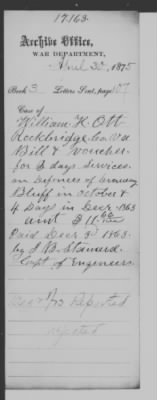 17163
Archive Office,
WAR DEPARTMENT,
April 30, 1875
Book 3 Letters Sent, page 107
Case of
William H. Ott
Rockbridge Co. Va
Bill & Voucher
for 3 days services
on Defences of Drewrys
Bluff in October &
4 days in Decr. 1863
amt $11
Paid Decr 3d 1863
by J B. Stanard
Capt of Engineers
Reported
rejected